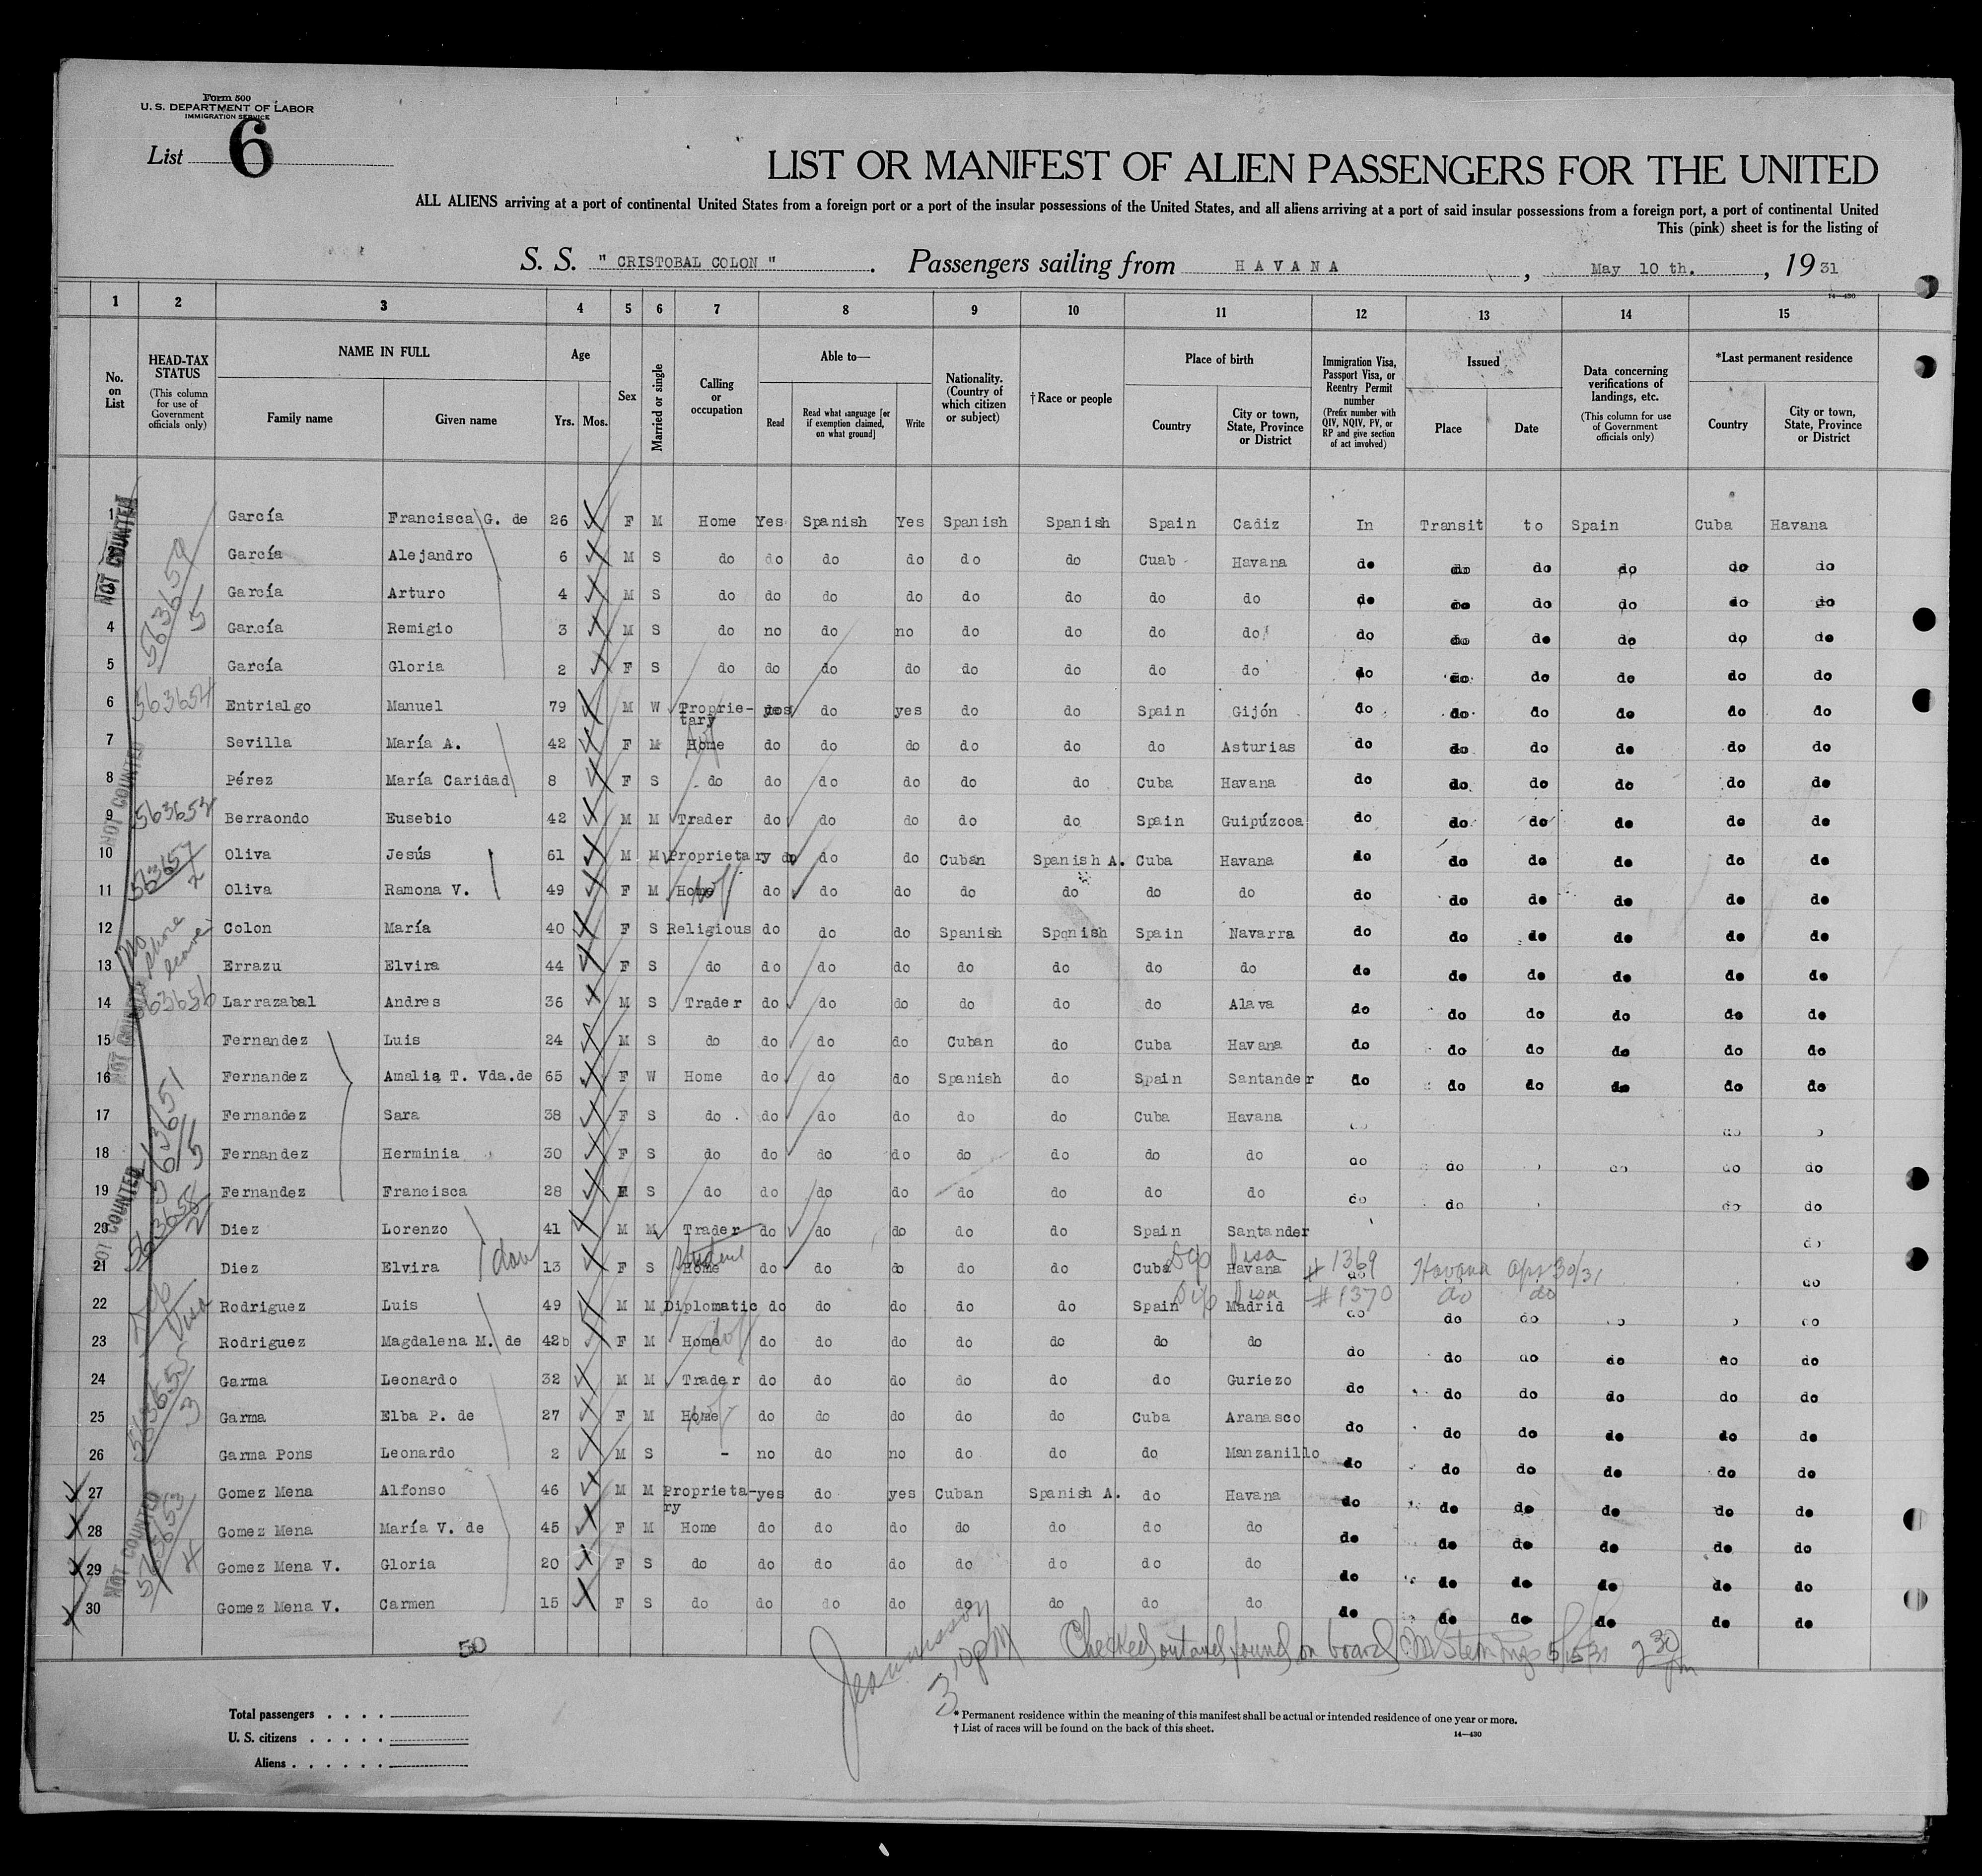 Form 500
U. S. DEPARTMENT OF LABOR
IMMIGRATION SERVICE
List 6
LIST OR MANIFEST OF ALIEN PASSENGERS FOR THE UNITED
ALL ALIENS arriving at a port of continental United States from a foreign port or a port of the insular possessions of the United States, and all aliens arriving at a port of said insular possessions from a foreign port, a port of continental United
This (pink) sheet is for the listing of
S. S. " CRISTOBAL COLON " . Passengers sailing from HAVANA , May 10 th. , 19 31
14—430
1 2 3 4 5 6 7 8 9 10 11 12 13 14 15
No. on List
HEAD-TAX STATUS (This column for use of Government officials only)
NAME IN FULL
Family name Given name
Age
Yrs. Mos.
Sex
Married or single
Calling or occupation
Able to—
Read
Read what language [or if exemption claimed, on what ground]
Write
Nationality. (Country of which citizen or subject)
† Race or people
Place of birth
Country
City or town, State, Province or District
Immigration Visa, Passport Visa, or Reentry Permit number (Prefix number with QIV, NQIV, PV, or RP and give section of act involved)
Issued
Place Date
Data concerning verifications of landings, etc. (This column for use of Government officials only)
*Last permanent residence
Country
City or town, State, Province or District
1 García Francisca G. de 26 F M Home Yes Spanish Yes Spanish Spanish Spain Cadiz In Transit to Spain Cuba Havana
García Alejandro 6 M S do do do do do do Cuab Havana do do do do do do
García Arturo 4 M S do do do do do do do do do do do do do do
4 García Remigio 3 M S do no do no do do do do do do do do do do
5 García Gloria 2 F S do do do do do do do do do do do do do do
6 563654 Entrialgo Manuel 79 M W Proprie-tary yes do yes do do Spain Gijón do do do do do do
7 Sevilla María A. 42 F M Home do do do do do do Asturias do do do do do do
8 Pérez María Caridad 8 F S do do do do do do Cuba Havana do do do do do do
9 563652 Berraondo Eusebio 42 M M Trader do do do do do Spain Guipúzcoa do do do do do do
10 Oliva Jesús 61 M M Proprietary do do do Cuban Spanish A. Cuba Havana do do do do do do
11 563657/2 Oliva Ramona V. 49 F M Home do do do do do do do do do do do do do
12 Colon María 40 F S Religious do do do Spanish Spanish Spain Navarra do do do do do do
13 No shore leave Errazu Elvira 44 F S do do do do do do do do do do do do do do
14 Larrazabal Andres 36 M S Trader do do do do do do Alava do do do do do do
15 Fernandez Luis 24 M S do do do do Cuban do Cuba Havana do do do do do do
16 Fernandez Amalia T. Vda.de 65 F W Home do do do Spanish do Spain Santander do do do do do do
17 563651/5 Fernandez Sara 38 F S do do do do do do Cuba Havana do
18 Fernandez Herminia 30 F S do do do do do do do do do do do do do
19 Fernandez Francisca 28 S do do do do do do do do do do do do
20 563658/2 Diez Lorenzo 41 M M Trader do do do do do Spain Santander do
21 Diez Elvira dau 13 F S Home Student do do do do do Cuba Havana do do
Dip Visa # 1369 Havana Apr 30/31
22 Rodriguez Luis 49 M M Diplomatic do do do do do Spain Madrid do do do do
Dip Visa # 1370 do do
23 Rodriguez Magdalena M. de 42b F M Home do do do do do do do do do do do do do
24 Garma Leonardo 32 M M Trader do do do do do do Guriezo do do do do do do
25 563655/3 Garma Elba P. de 27 F M Home do do do do do Cuba Aranasco do do do do do do
26 Garma Pons Leonardo 2 M S - no do no do do do Manzanillo do do do do do do
27 Gomez Mena Alfonso 46 M M Proprieta-ry yes do yes Cuban Spanish A. do Havana do do do do do do
28 Gomez Mena María V. de 45 F M Home do do do do do do do do do do do do do
29 563653/4 Gomez Mena V. Gloria 20 F S do do do do do do do do do do do do do do
30 Gomez Mena V. Carmen 15 F S do do do do do do do do do do do do do do
NOT COUNTED
NOT COUNTED
NOT COUNTED
NOT COUNTED
NOT COUNTED
30
3 10 PM
Checked out and found on board 5/15/31 2 30 pm
Total passengers . . . .
U. S. citizens . . . . .
Aliens . . . . . .
* Permanent residence within the meaning of this manifest shall be actual or intended residence of one year or more.
† List of races will be found on the back of this sheet.
14—430